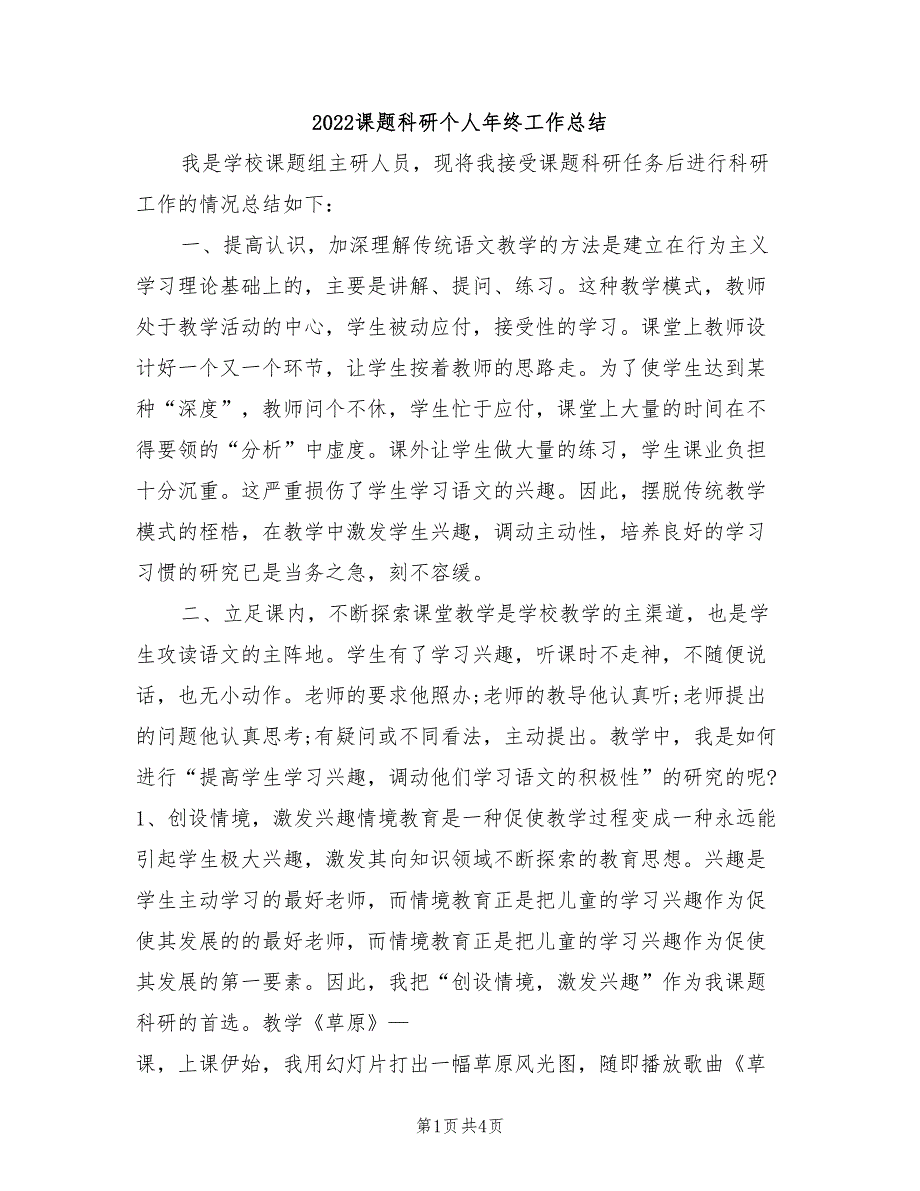 2022课题科研个人年终工作总结
我是学校课题组主研人员，现将我接受课题科研任务后进行科研
工作的情况总结如下：
一、提高认识，加深理解传统语文教学的方法是建立在行为主义
学习理论基础上的，主要是讲解、提问、练习。这种教学模式，教师
处于教学活动的中心，学生被动应付，接受性的学习。课堂上教师设
计好一个又一个环节，让学生按着教师的思路走。为了使学生达到某
种“深度”，教师问个不休，学生忙于应付，课堂上大量的时间在不
得要领的“分析”中虚度。课外让学生做大量的练习，学生课业负担
十分沉重。这严重损伤了学生学习语文的兴趣。因此，摆脱传统教学
模式的桎梏，在教学中激发学生兴趣，调动主动性，培养良好的学习
习惯的研究已是当务之急，刻不容缓。
二、立足课内，不断探索课堂教学是学校教学的主渠道，也是学
生攻读语文的主阵地。学生有了学习兴趣，听课时不走神，不随便说
话，也无小动作。老师的要求他照办;老师的教导他认真听;老师提出
的问题他认真思考;有疑问或不同看法，主动提出。教学中，我是如何
进行“提高学生学习兴趣，调动他们学习语文的积极性”的研究的呢?
1、创设情境，激发兴趣情境教育是一种促使教学过程变成一种永远能
引起学生极大兴趣，激发其向知识领域不断探索的教育思想。兴趣是
学生主动学习的最好老师，而情境教育正是把儿童的学习兴趣作为促
使其发展的的最好老师，而情境教育正是把儿童的学习兴趣作为促使
其发展的第一要素。因此，我把“创设情境，激发兴趣”作为我课题
科研的首选。教学《草原》—
课，上课伊始，我用幻灯片打出一幅草原风光图，随即播放歌曲《草
第1页共4页